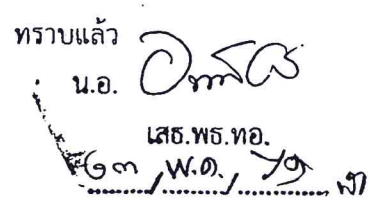 ทราบแล้ว
น.อ.
เสธ.พธ.ทอ.
๑๓ / พ.ค. /